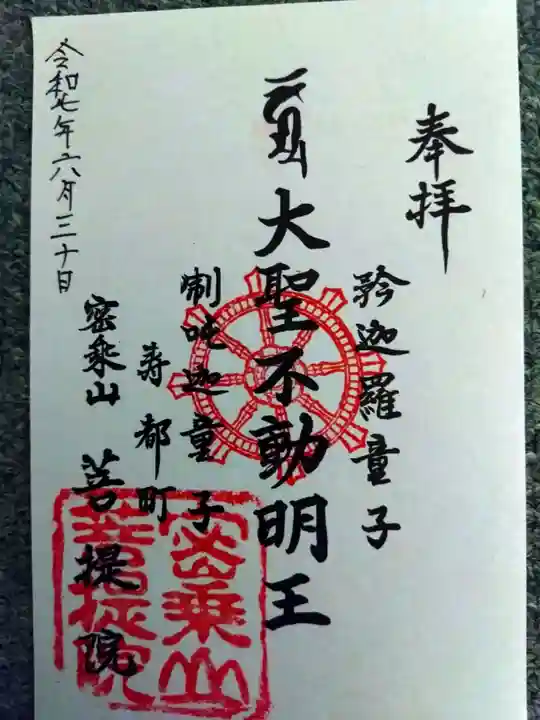 奉拝
矜迦羅童子
大聖不動明王
制吒迦童子
寿都町
密乗山 菩提院
令和七年六月三十日
密乗山
菩提院